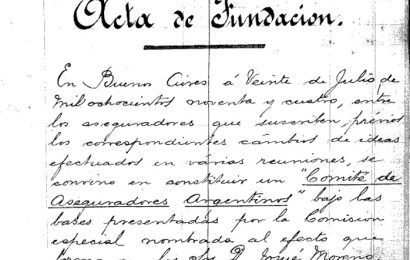 Acta de Fundacion.
En Buenos Aires á Veinte de Julio de
Mil ochocientos noventa y cuatro, entre
los aseguradores que suscriben, prévios
los correspondientes cámbios de ideas
efectuados en várias reuniones, se
convino en constituir un "Comité de
Aseguradores Argentinos" bajo las
bases presentadas por la Comision
especial nombrada al efecto que
los Sres D. José Moreno